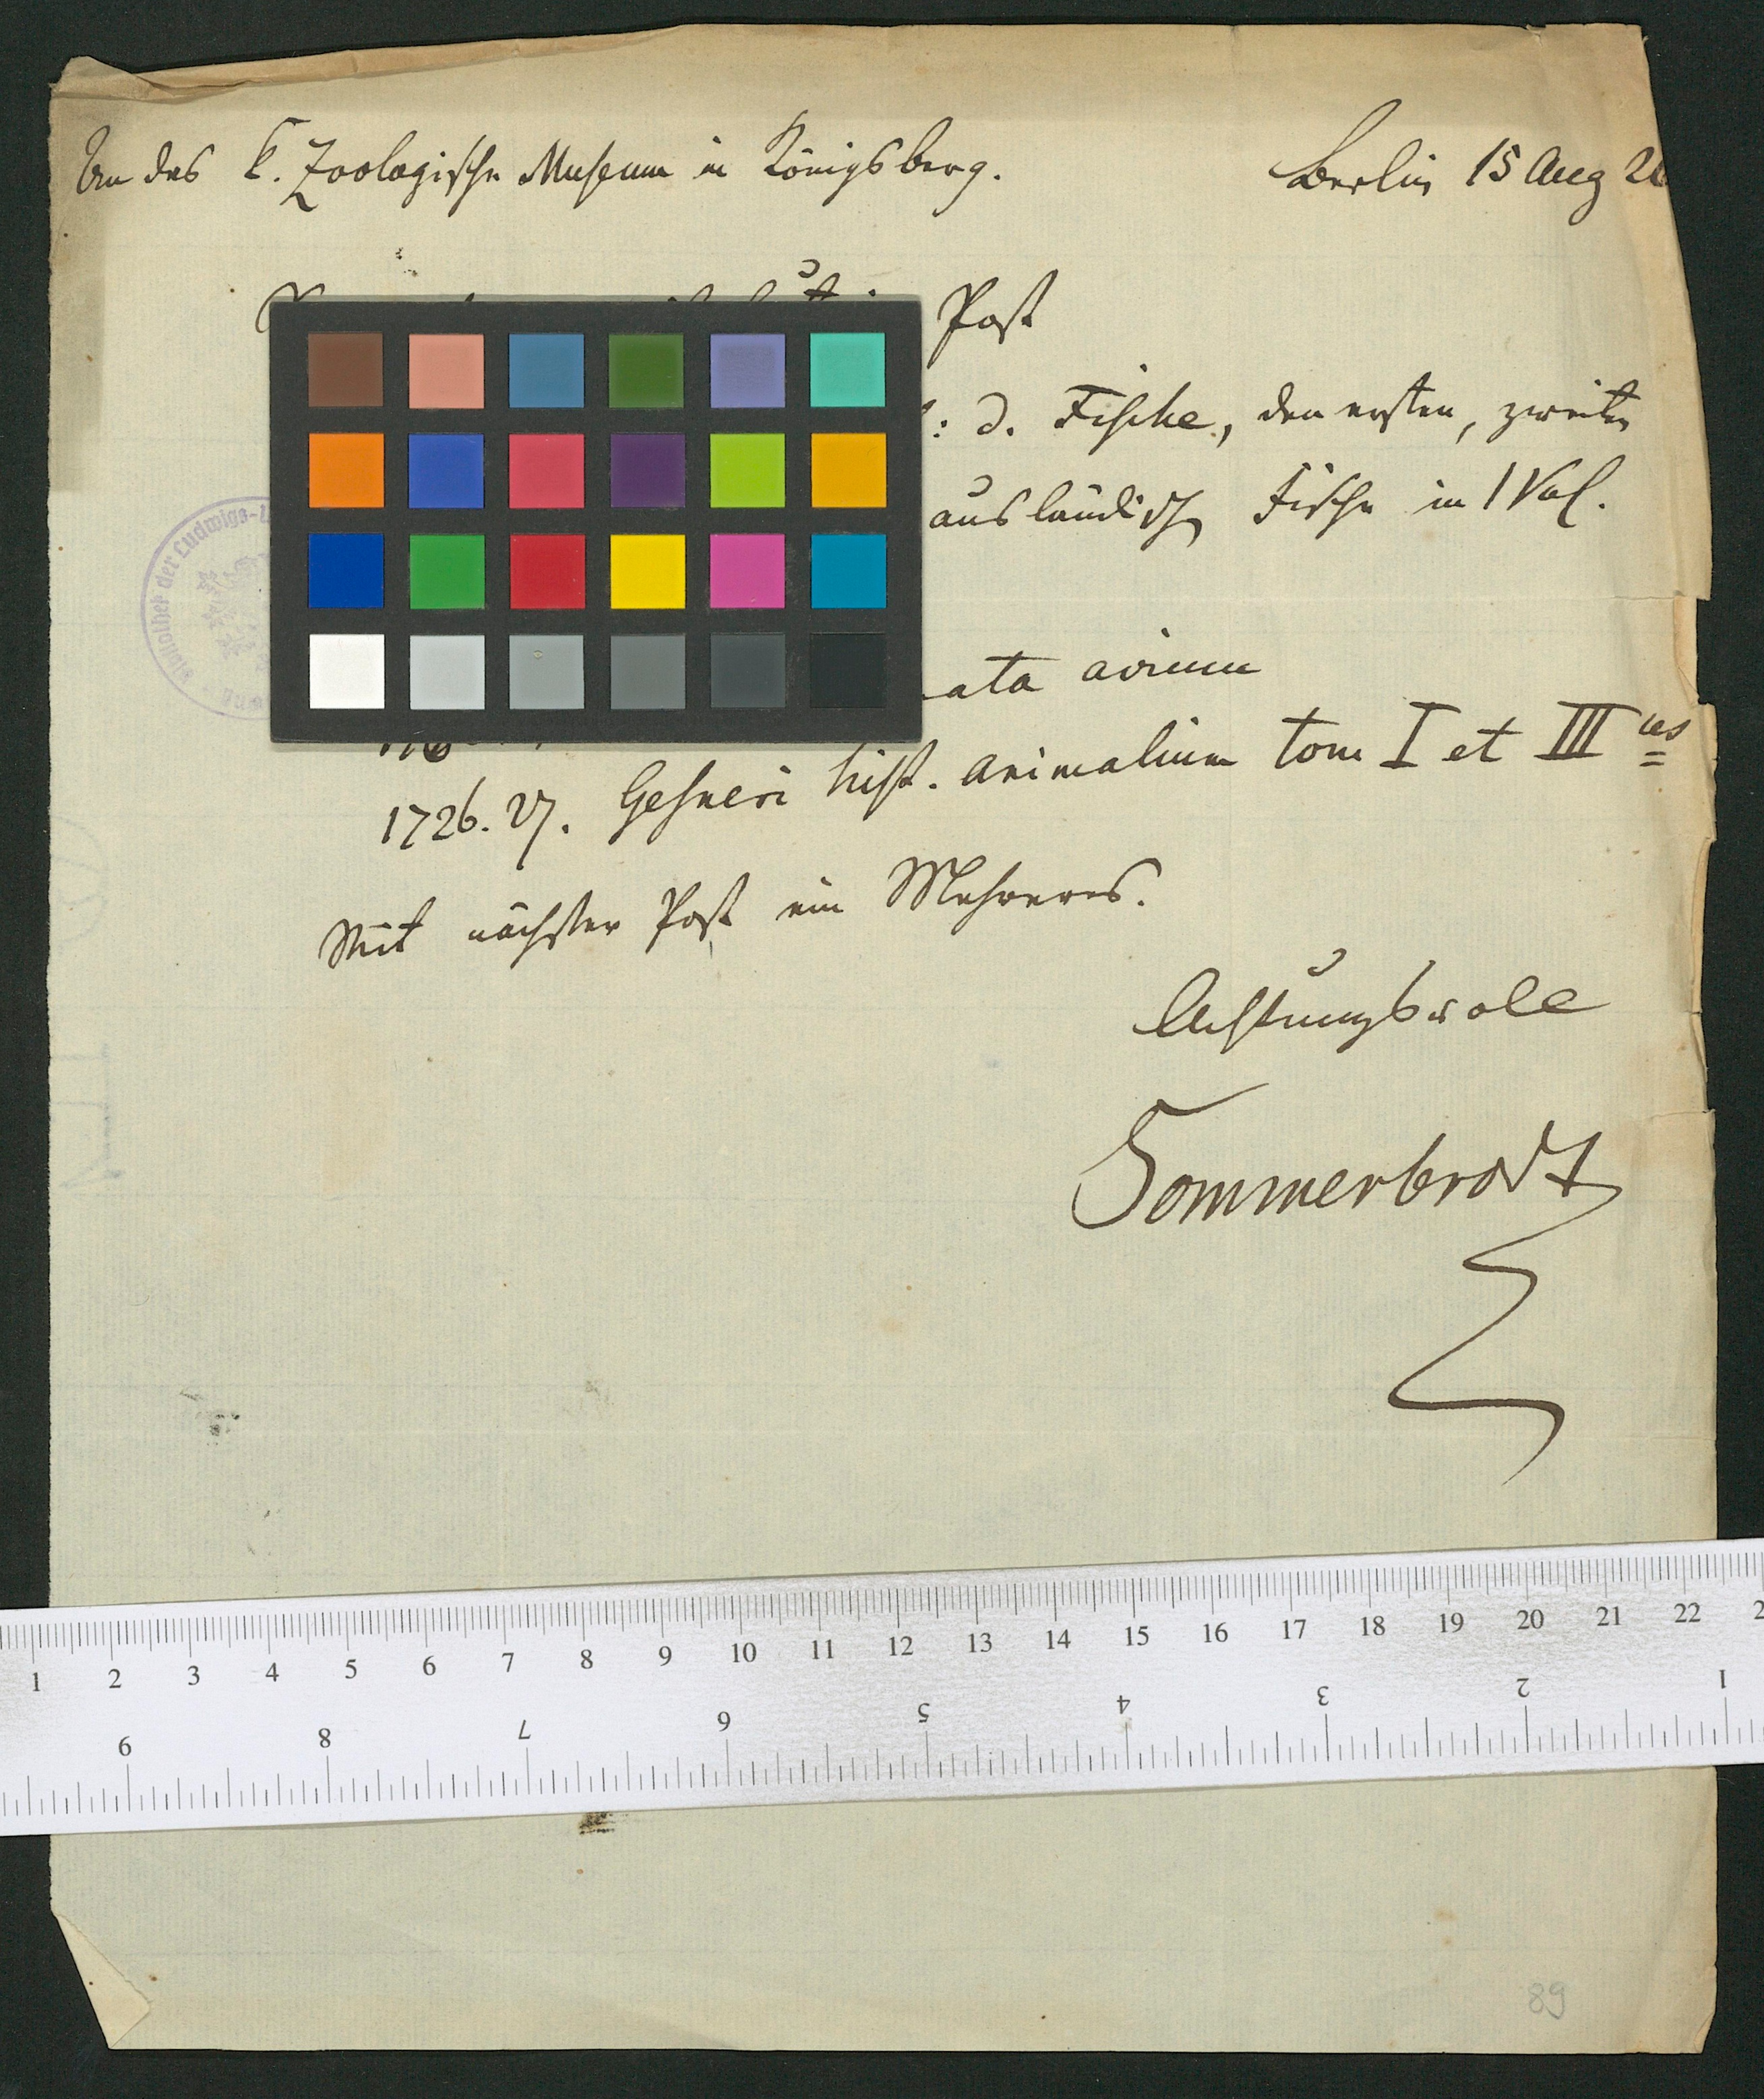 An das k. Zoologische Museum in Königsberg.
Berlin 15 Aug 2
Post
: d. Fische, den ersten, zweiten
ausländisch Fische in 1 Vol.
ata avium
1726. 27. Gesneri hist. animalium tom I et III
Mit nächster Post ein Mehreres.
Achtungsvoll
Sommerbrodt
der Ludwigs-
1 2 3 4 5 6 7 8 9 10 11 12 13 14 15 16 17 18 19 20 21 22 2
9 8 7 6 5 4 3 2 1
89